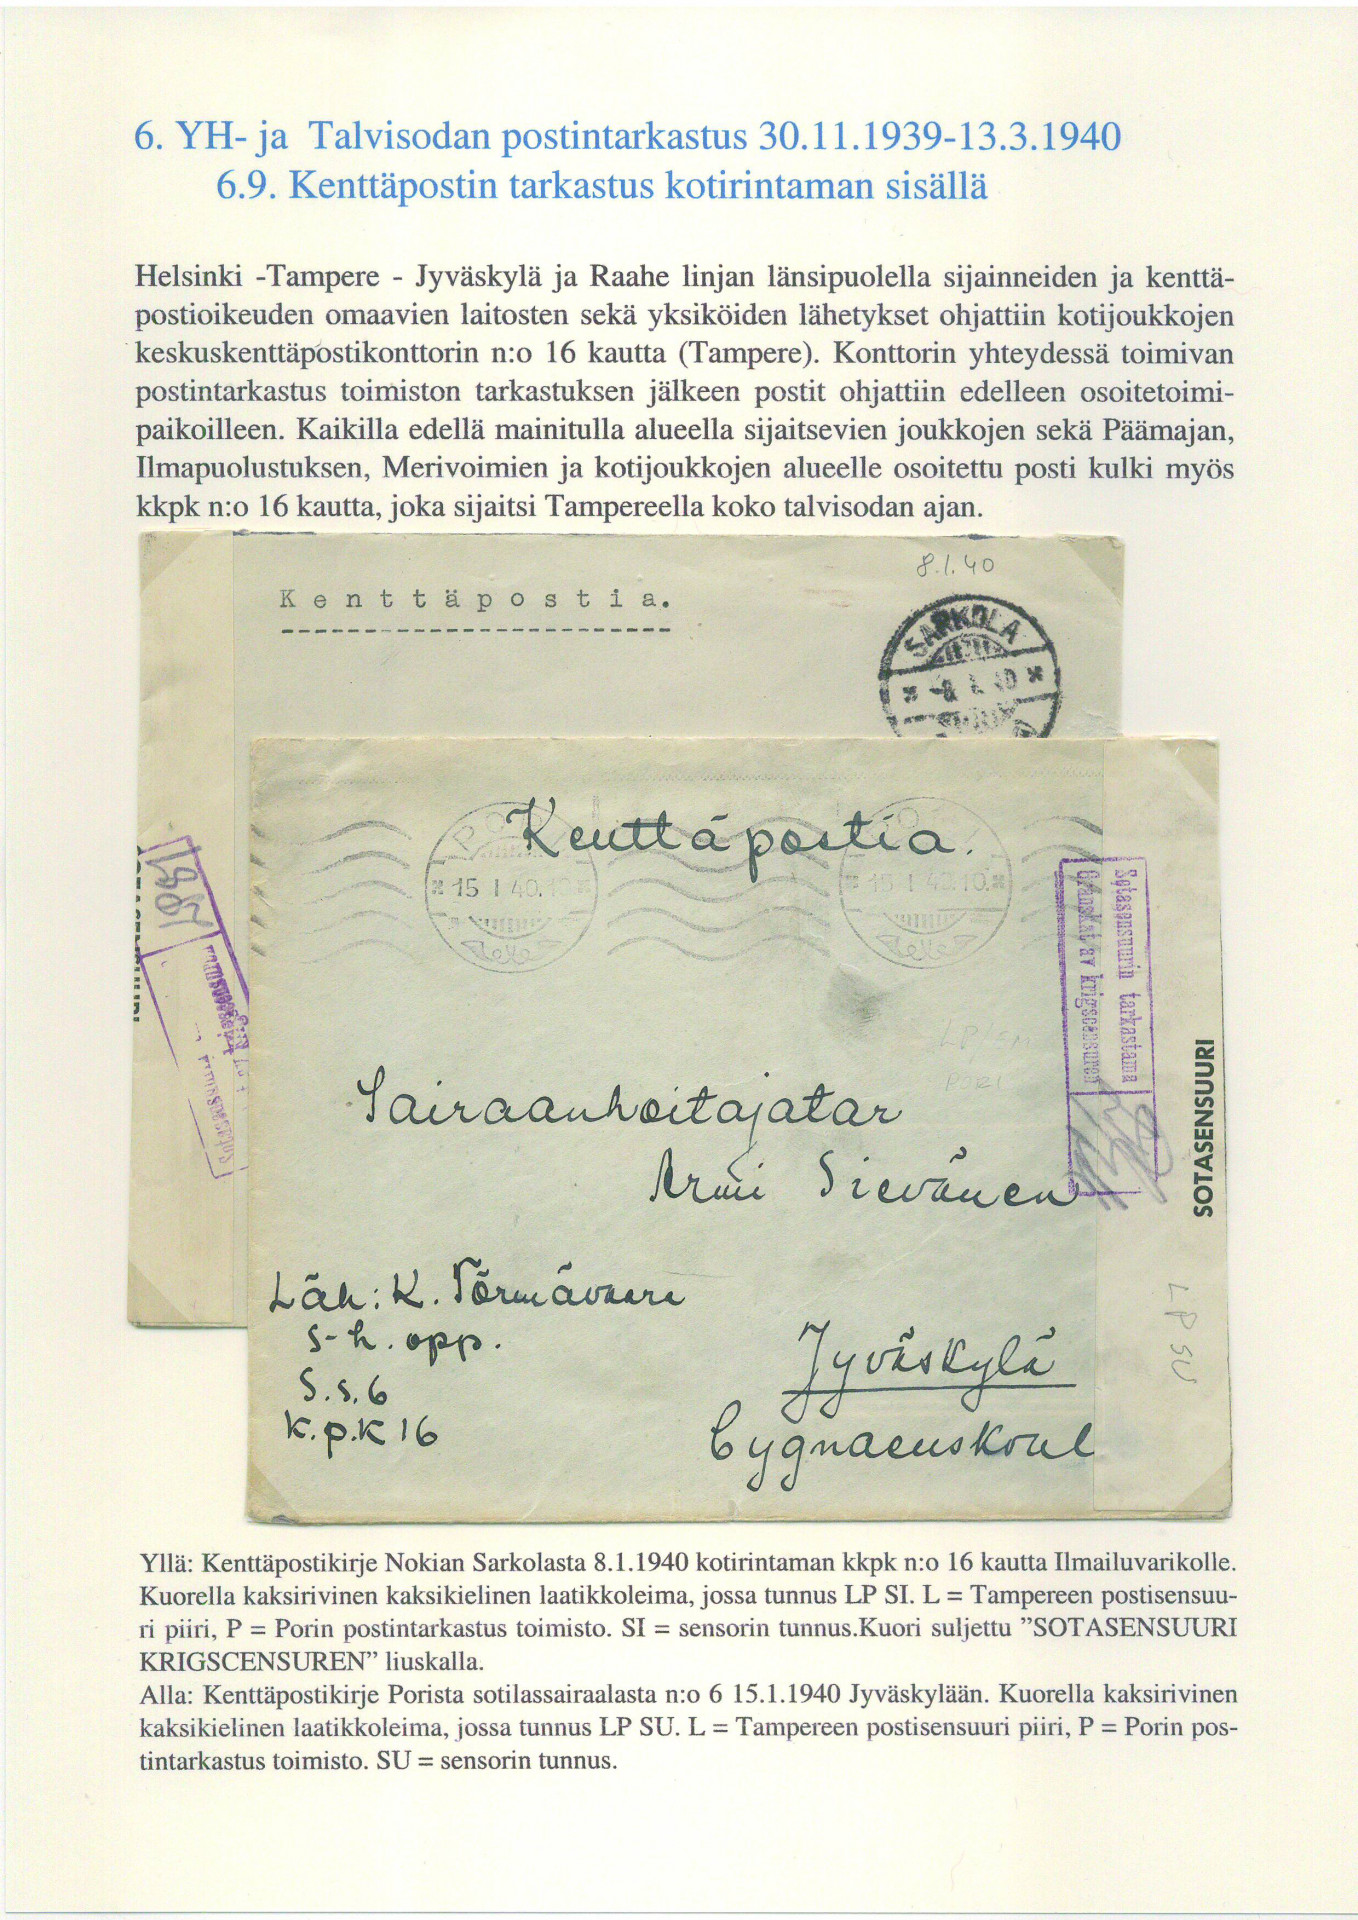 6. YH- ja Talvisodan postintarkastus 30.11.1939-13.3.1940
6.9. Kenttäpostin tarkastus kotirintaman sisällä
Helsinki -Tampere - Jyväskylä ja Raahe linjan länsipuolella sijainneiden ja kenttä-
postioikeuden omaavien laitosten sekä yksiköiden lähetykset ohjattiin kotijoukkojen
keskuskenttäpostikonttorin n:o 16 kautta (Tampere). Konttorin yhteydessä toimivan
postintarkastus toimiston tarkastuksen jälkeen postit ohjattiin edelleen osoitetoimi-
paikoilleen. Kaikilla edellä mainitulla alueella sijaitsevien joukkojen sekä Päämajan,
Ilmapuolustuksen, Merivoimien ja kotijoukkojen alueelle osoitettu posti kulki myös
kkpk n:o 16 kautta, joka sijaitsi Tampereella koko talvisodan ajan.
8.1.40
Kenttäpostia.
SARKOLA
Kenttäpostia.
15 I 40.10
15 I 40.10
Sotasensuurin tarkastama
Granskat av krigscensuren
LP/SU
PORI
Sairaanhoitajatar
Armi Sievänen
SOTASENSUURI
Läh: K. Törmävaara
S-h. opp.
S.s. 6
K.p.K 16
LP SU
Jyväskylä
Cygnaeuskoul
Yllä: Kenttäpostikirje Nokian Sarkolasta 8.1.1940 kotirintaman kkpk n:o 16 kautta Ilmailuvarikolle.
Kuorella kaksirivinen kaksikielinen laatikkoleima, jossa tunnus LP SI. L = Tampereen postisensuu-
ri piiri, P = Porin postintarkastus toimisto. SI = sensorin tunnus.Kuori suljettu ”SOTASENSUURI
KRIGSCENSUREN” liuskalla.
Alla: Kenttäpostikirje Porista sotilassairaalasta n:o 6 15.1.1940 Jyväskylään. Kuorella kaksirivinen
kaksikielinen laatikkoleima, jossa tunnus LP SU. L = Tampereen postisensuuri piiri, P = Porin pos-
tintarkastus toimisto. SU = sensorin tunnus.